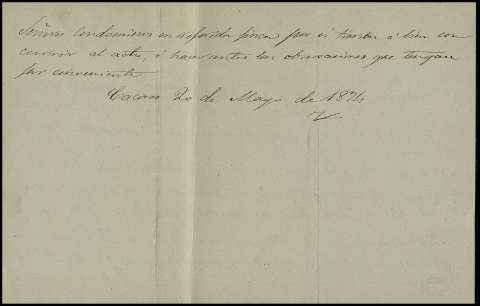 Señores Condominos en referida finca por si tienen á bien con
currir al acto, ó hacer antes las observaciones que tengan
por conveniente.
Caceres 20 de Mayo de 1874